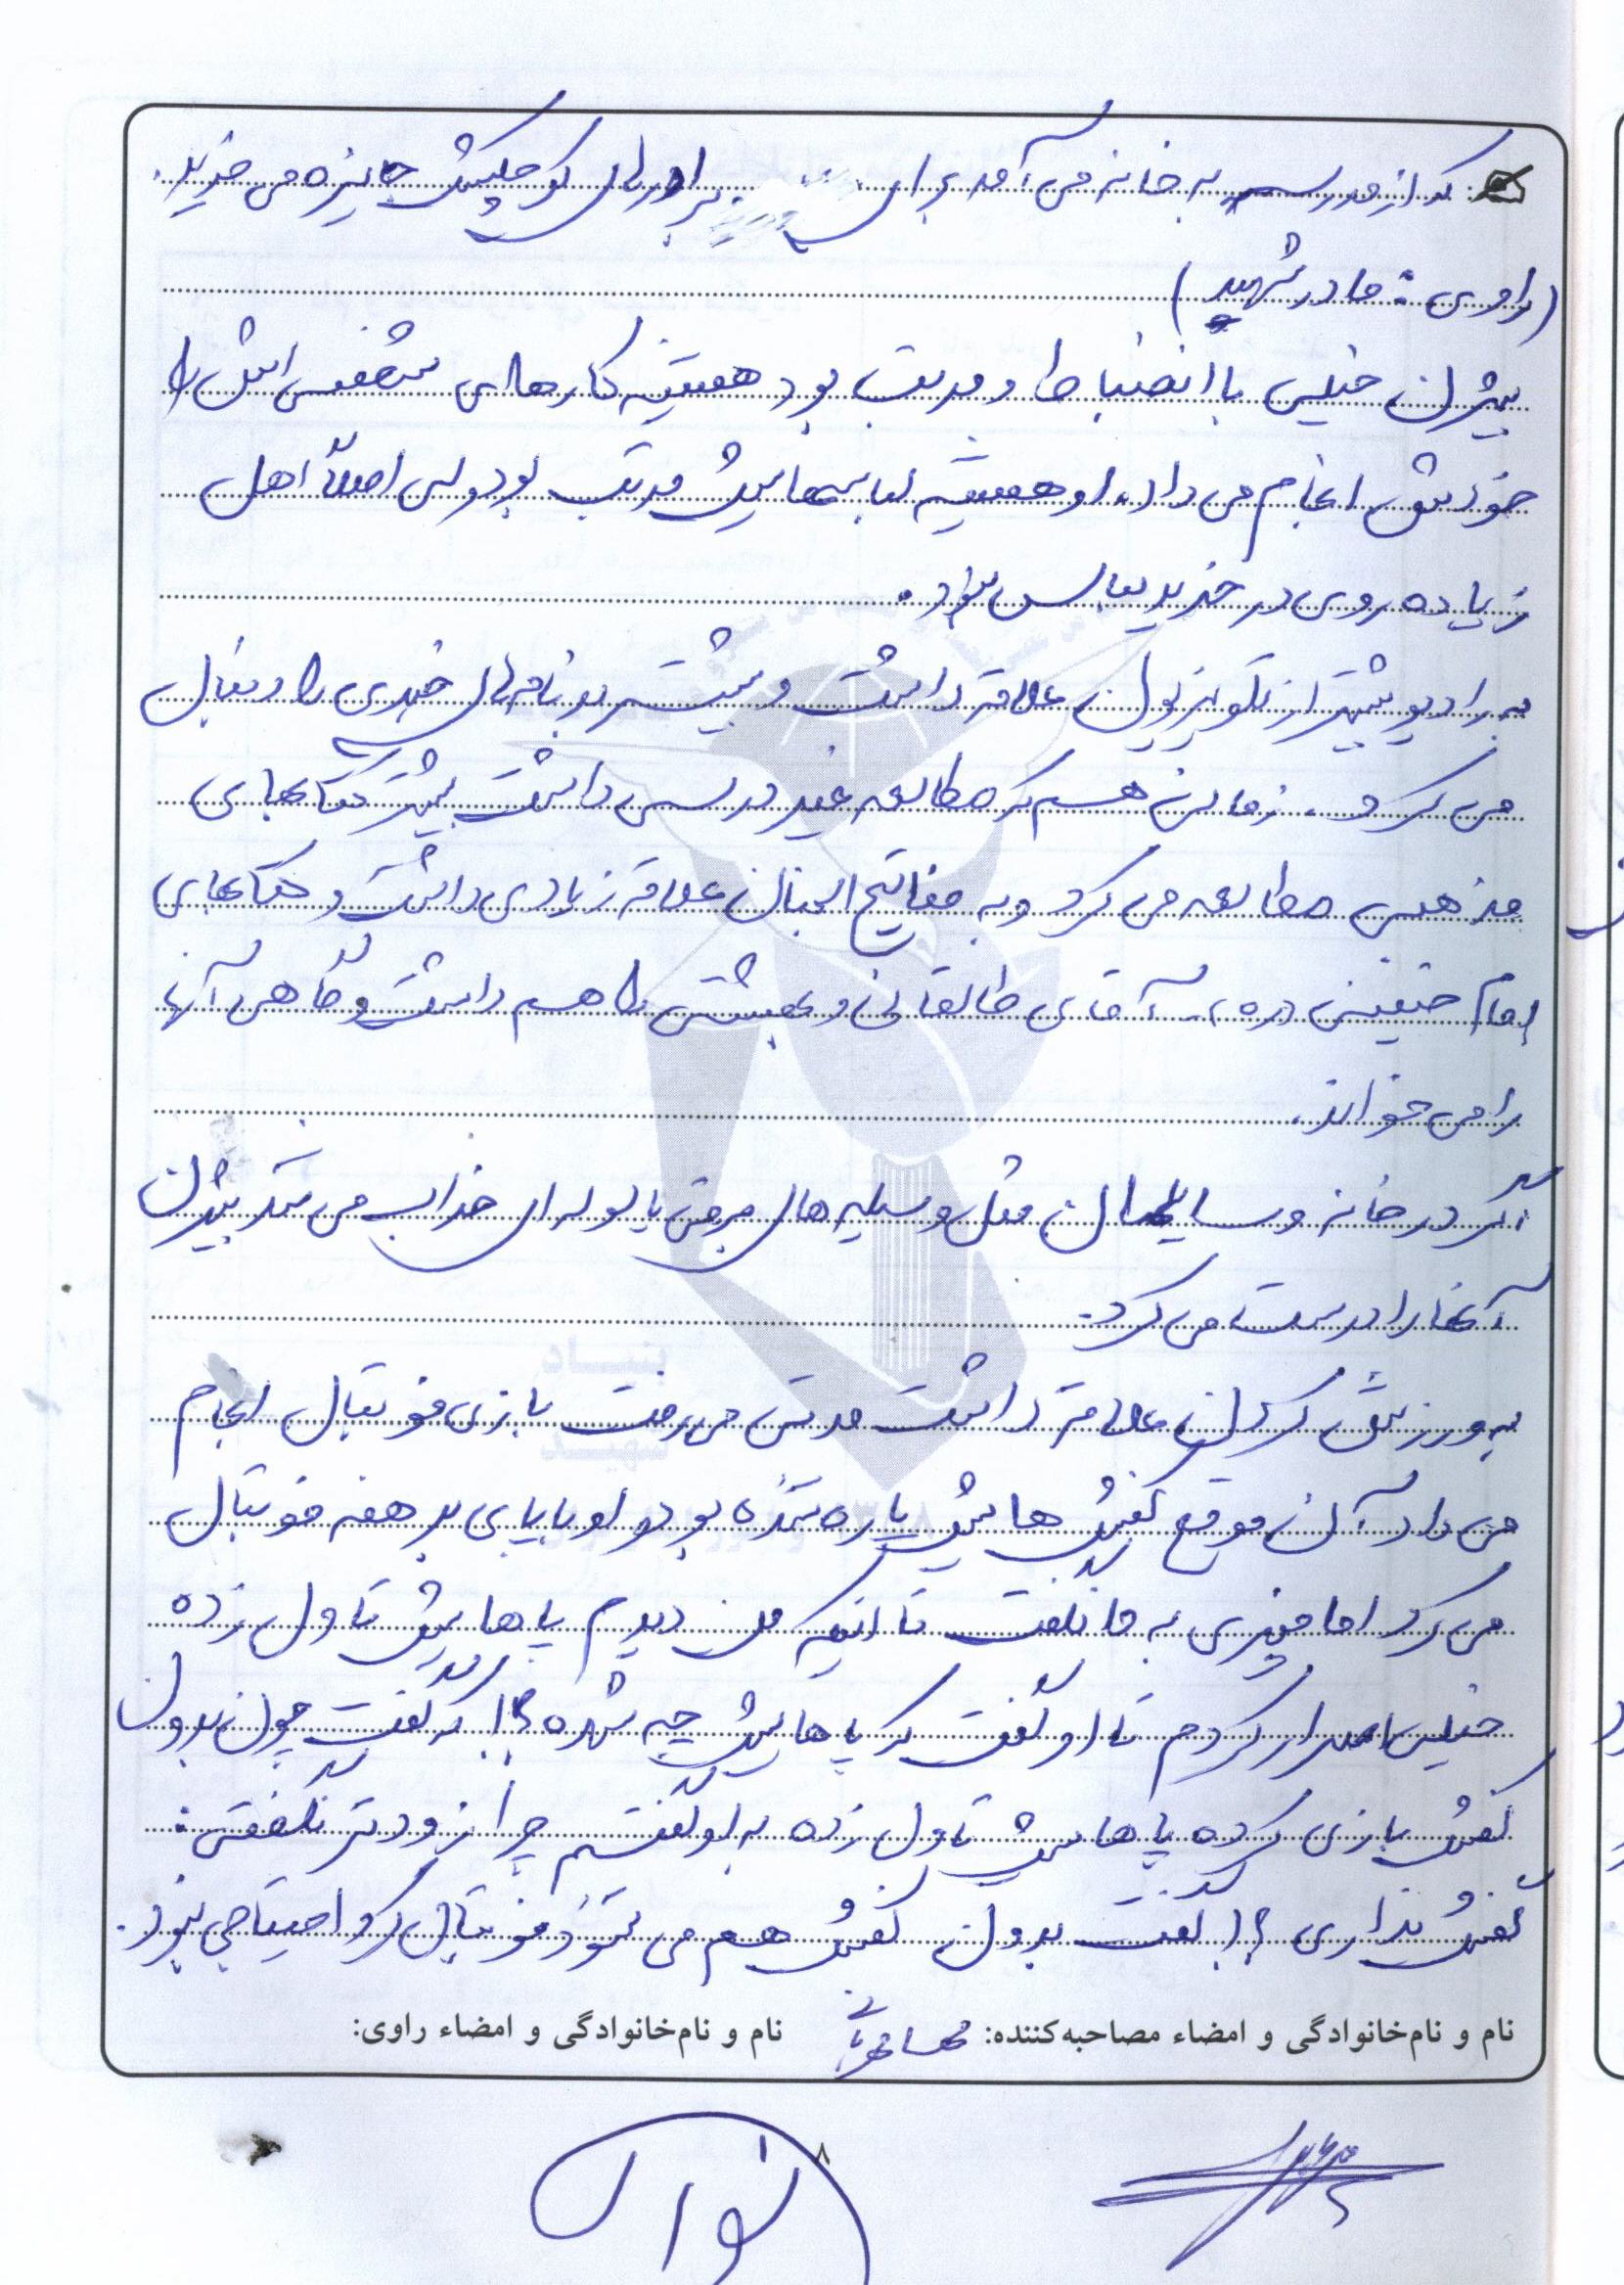 که از مدرسه به خانه می آمد برای برادرهای کوچکش جایزه می خرید.
(راوی: مادر شهید)
بیژن خیلی با انضباط و مرتب بود همیشه کارهای شخصی اش را
خودش انجام می داد، او همیشه لباسهایش مرتب بود ولی اصلاً اهل
زیاده روی در خرید لباس نبود.
به رادیو بیشتر از تلویزیون علاقه داشت و بیشتر برنامه های خبری را دنبال
می کرد. زمانی هم که مطالعه غیر درسی داشت بیشتر کتابهای
مذهبی مطالعه می کرد و به مفاتیح الجنان علاقه زیادی داشت و کتابهای
امام خمینی (ره)، آقای طالقانی و بهشتی را هم داشت و گاهی آنها
را می خواند.
اگر در خانه وسایلمان مثل وسیله های برقی یا لوله ای خراب می شد بیژن
آنها را درست می کرد.
به ورزش کردن علاقه داشت مدتی می رفت بازی فوتبال انجام
می داد آن موقع کفش هایش پاره شده بود و او با پای برهنه فوتبال
می کرد اما چیزی به ما نگفت تا اینکه من دیدم پاهایش تاول زده
خیلی اصرار کردم تا او گفت که پاهایش چه شده؟! که گفت چون بدون
کفش بازی کرده پاهایش تاول زده به او گفتم چرا زودتر نگفتی:
کفش نداری؟! گفت بدون کفش هم می شود فوتبال کرد احتیاجی نبود.
نام و نام‌خانوادگی و امضاء مصاحبه‌کننده:
نام و نام‌خانوادگی و امضاء راوی:
بنیاد
شهید
۸